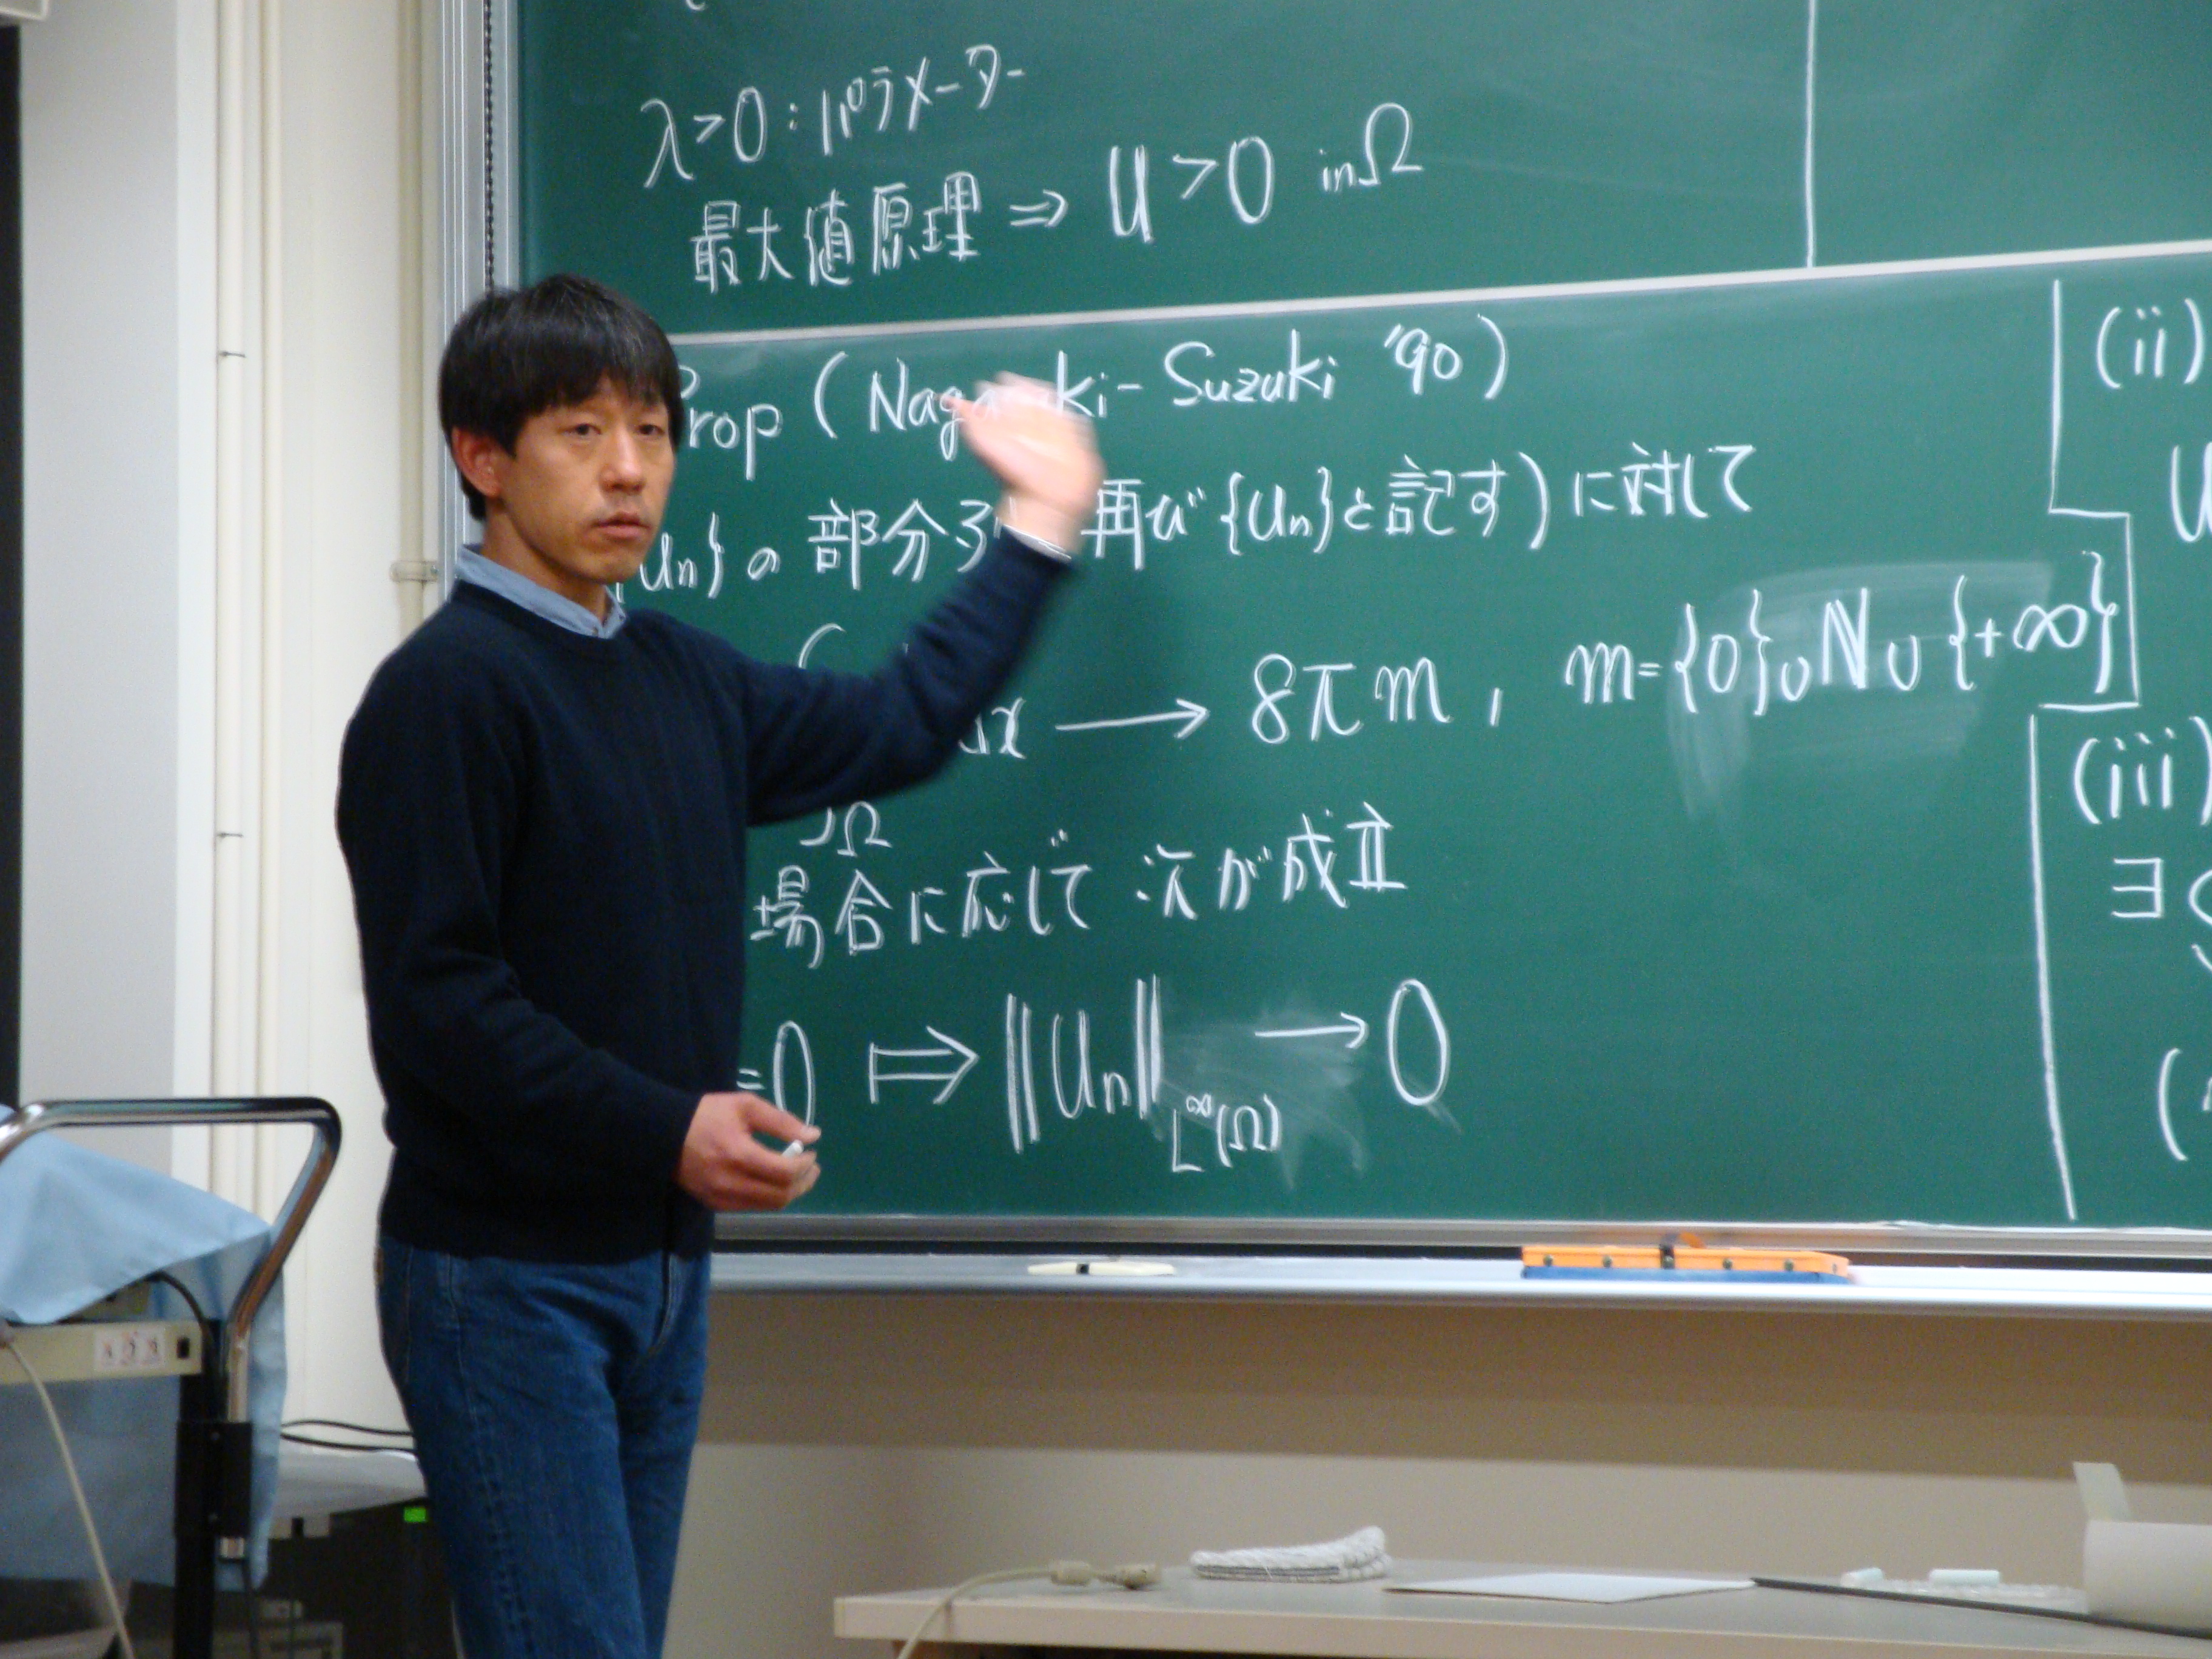 λ>0 : パラメーター
最大値原理 ⇒ u>0 in Ω
Prop ( Nagasaki - Suzuki '90 )
un} の 部分列 再び {un} と記す ) に対して
dx → 8πm , m={0}∪ℕ∪{+∞}
Ω
場合に応じて 次が成立
=0 ⟾ ||un||L∞(Ω) → 0
(ii)
U
(iii)
∃
(